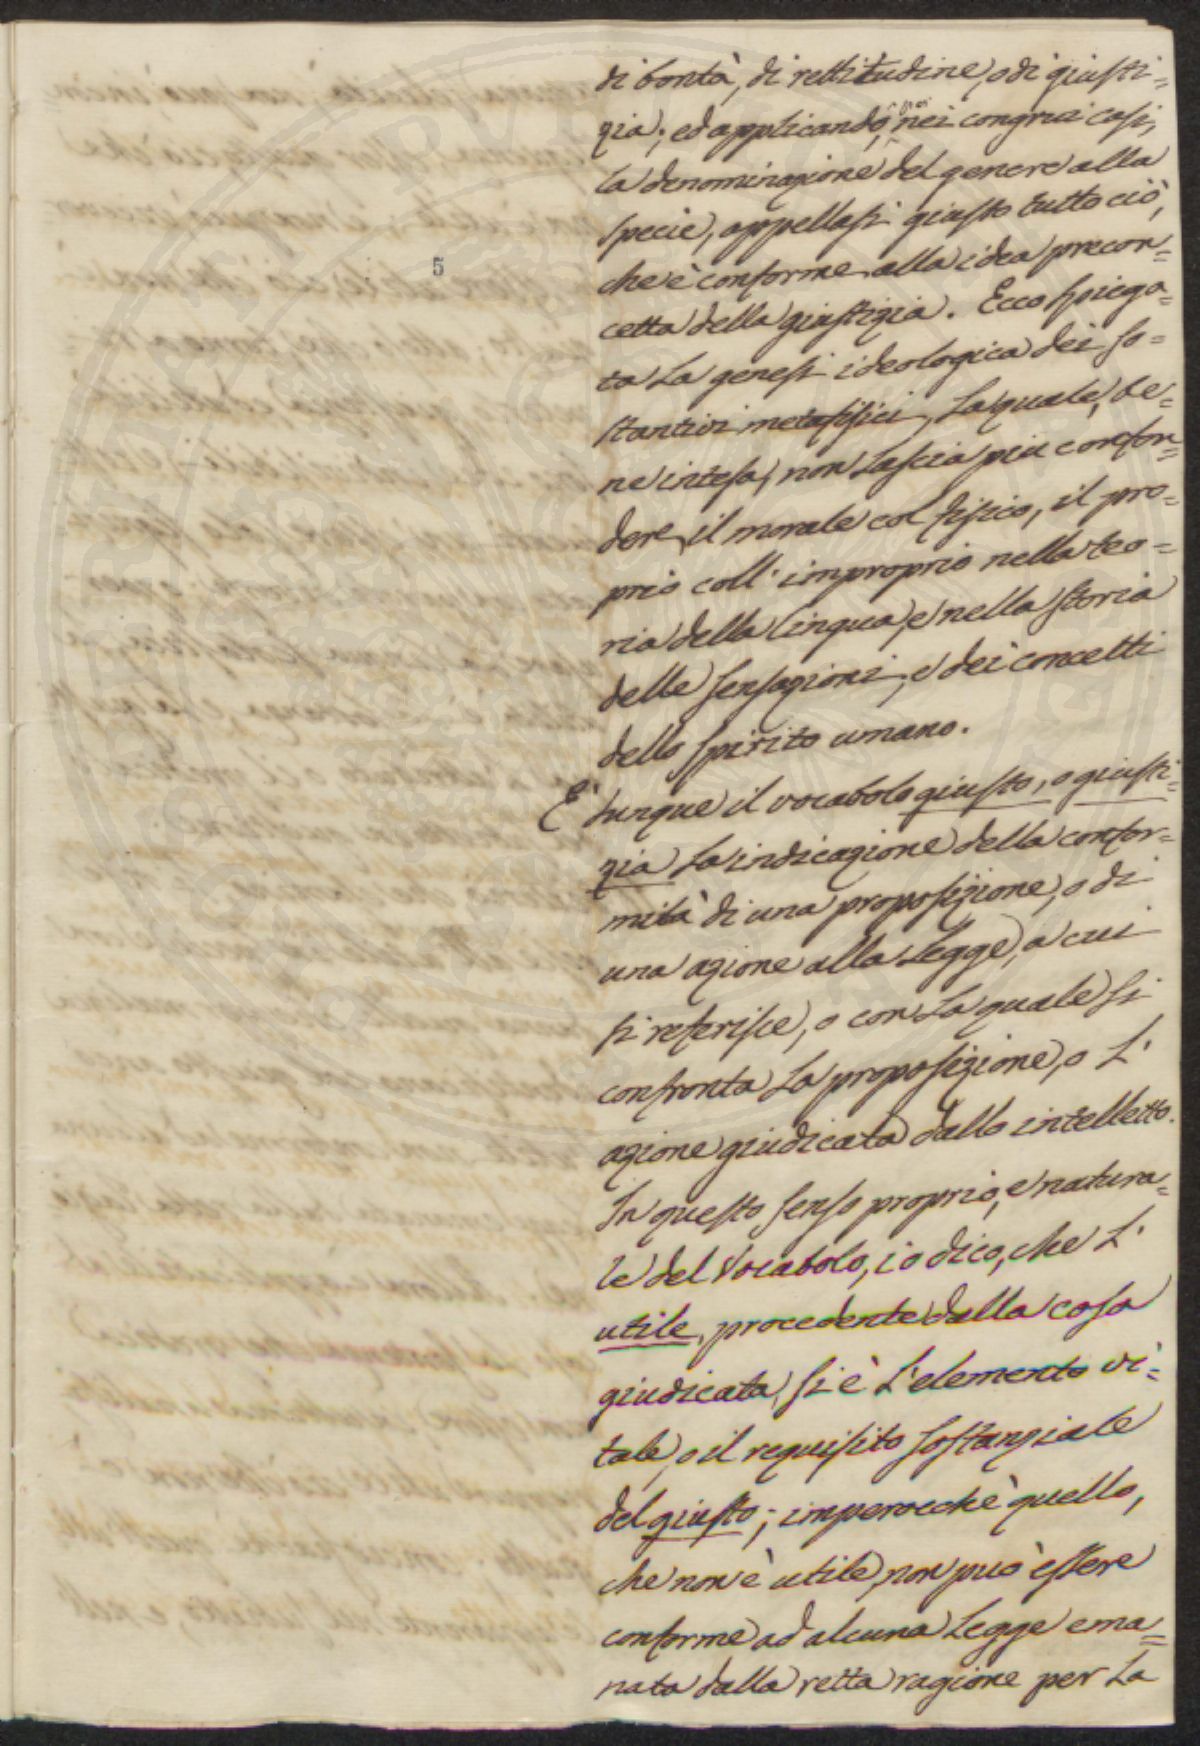 5
di bontà, di rettitudine, o di giusti=
zia; ed applicando, noi nei congrui casi,
la denominazione del genere alla
specie, appellasi giusto tutto ciò,
che è conforme alla idea precon=
cetta della giustizia. Ecco spiega=
ta la genesi ideologica dei so=
stantivi metafisici, la quale, be=
ne intesa, non lascia più confon=
dere il morale col fisico, il pro=
prio coll' improprio nella teo=
ria della lingua, e nella storia
delle sensazioni, e dei concetti
dello spirito umano.
E' dunque il vocabolo giusto, o giusti=
zia la indicazione della confor=
mità di una proposizione, o di
una azione alla Legge, a cui
si referisce, o con la quale si
confronta la proposizione, o l'
azione giudicata dallo intelletto.
In questo senso proprio, e natura=
le del Vocabolo, io dico, che l'
utile, procedente dalla cosa
giudicata, si è l'elemento vi=
tale, o il requisito sostanziale
del giusto; imperocchè quello,
che non è utile, non può essere
conforme ad alcuna Legge ema=
nata dalla retta ragione per la